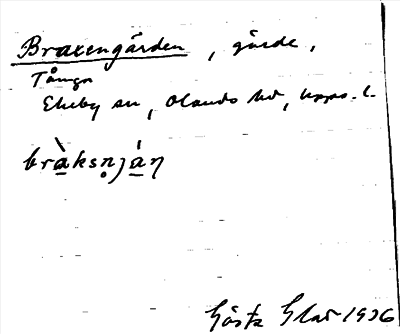 Braxengården, gärde,
Tånga
Ekeby sn, Olands hd, Upps. l.
bràksn̥ján
Gösta 1936